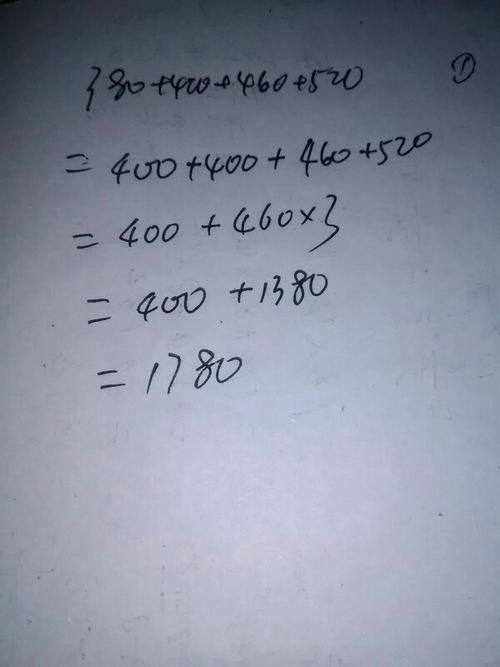 380+420+460+520 ①
=400+400+460+520
=400+460×3
=400+1380
=1780